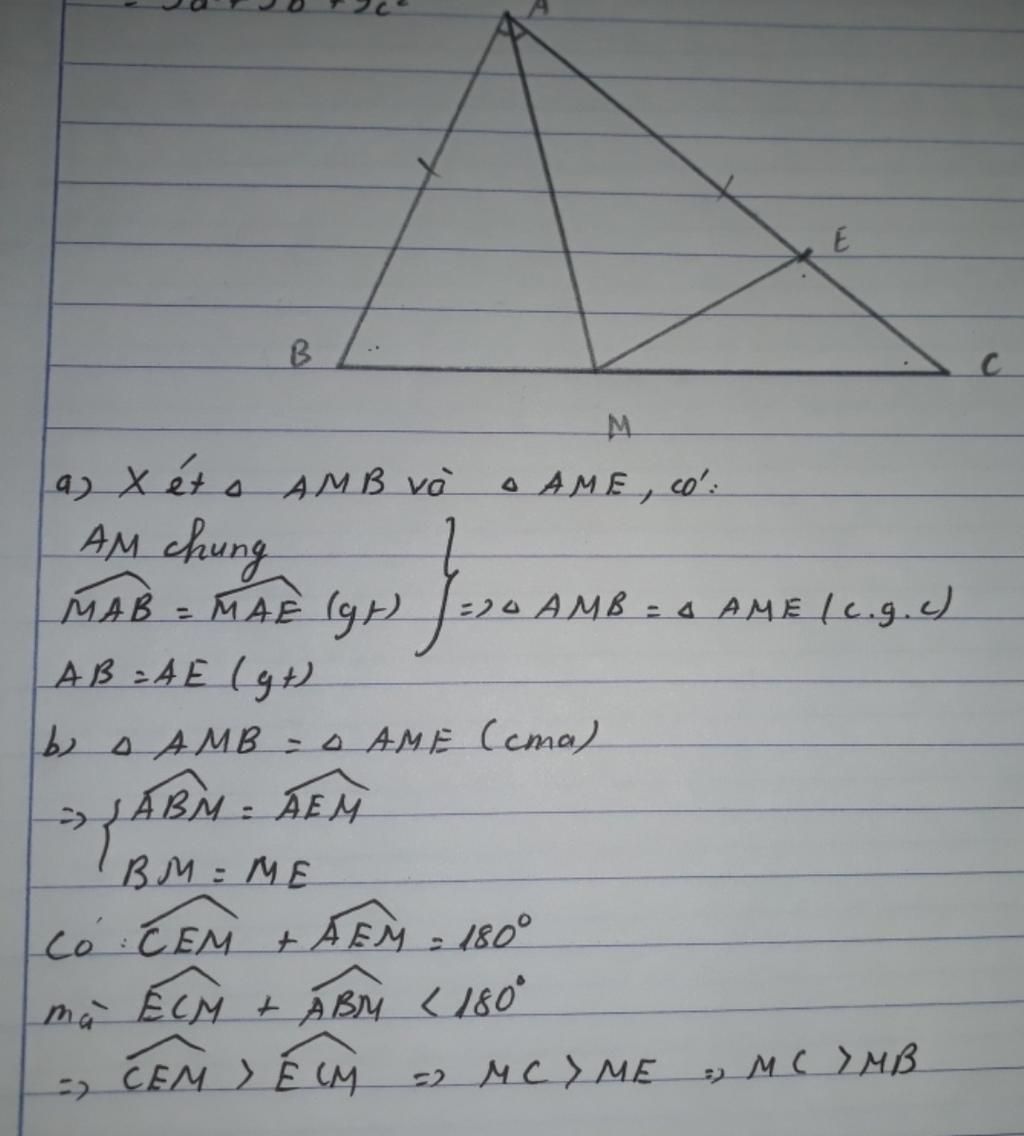 A
E
B
C
M
a) Xét Δ AMB và Δ AME, có:
AM chung
MAB = MAE (gt) } => Δ AMB = Δ AME (c.g.c)
AB = AE (gt)
b) Δ AMB = Δ AME (cma)
=> { ABM = AEM
BM = ME
Có: CEM + AEM = 180°
mà ECM + ABM < 180°
=> CEM > ECM => MC > ME => MC > MB